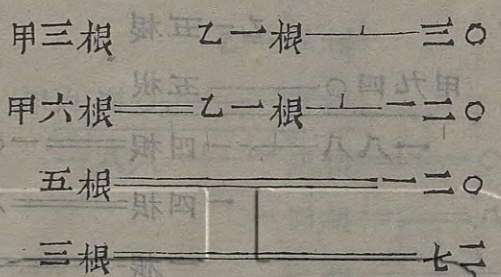 甲三根 乙一根―⊥―三〇
甲六根══乙一根―⊥―一二〇
五根══一二〇
三根══七二